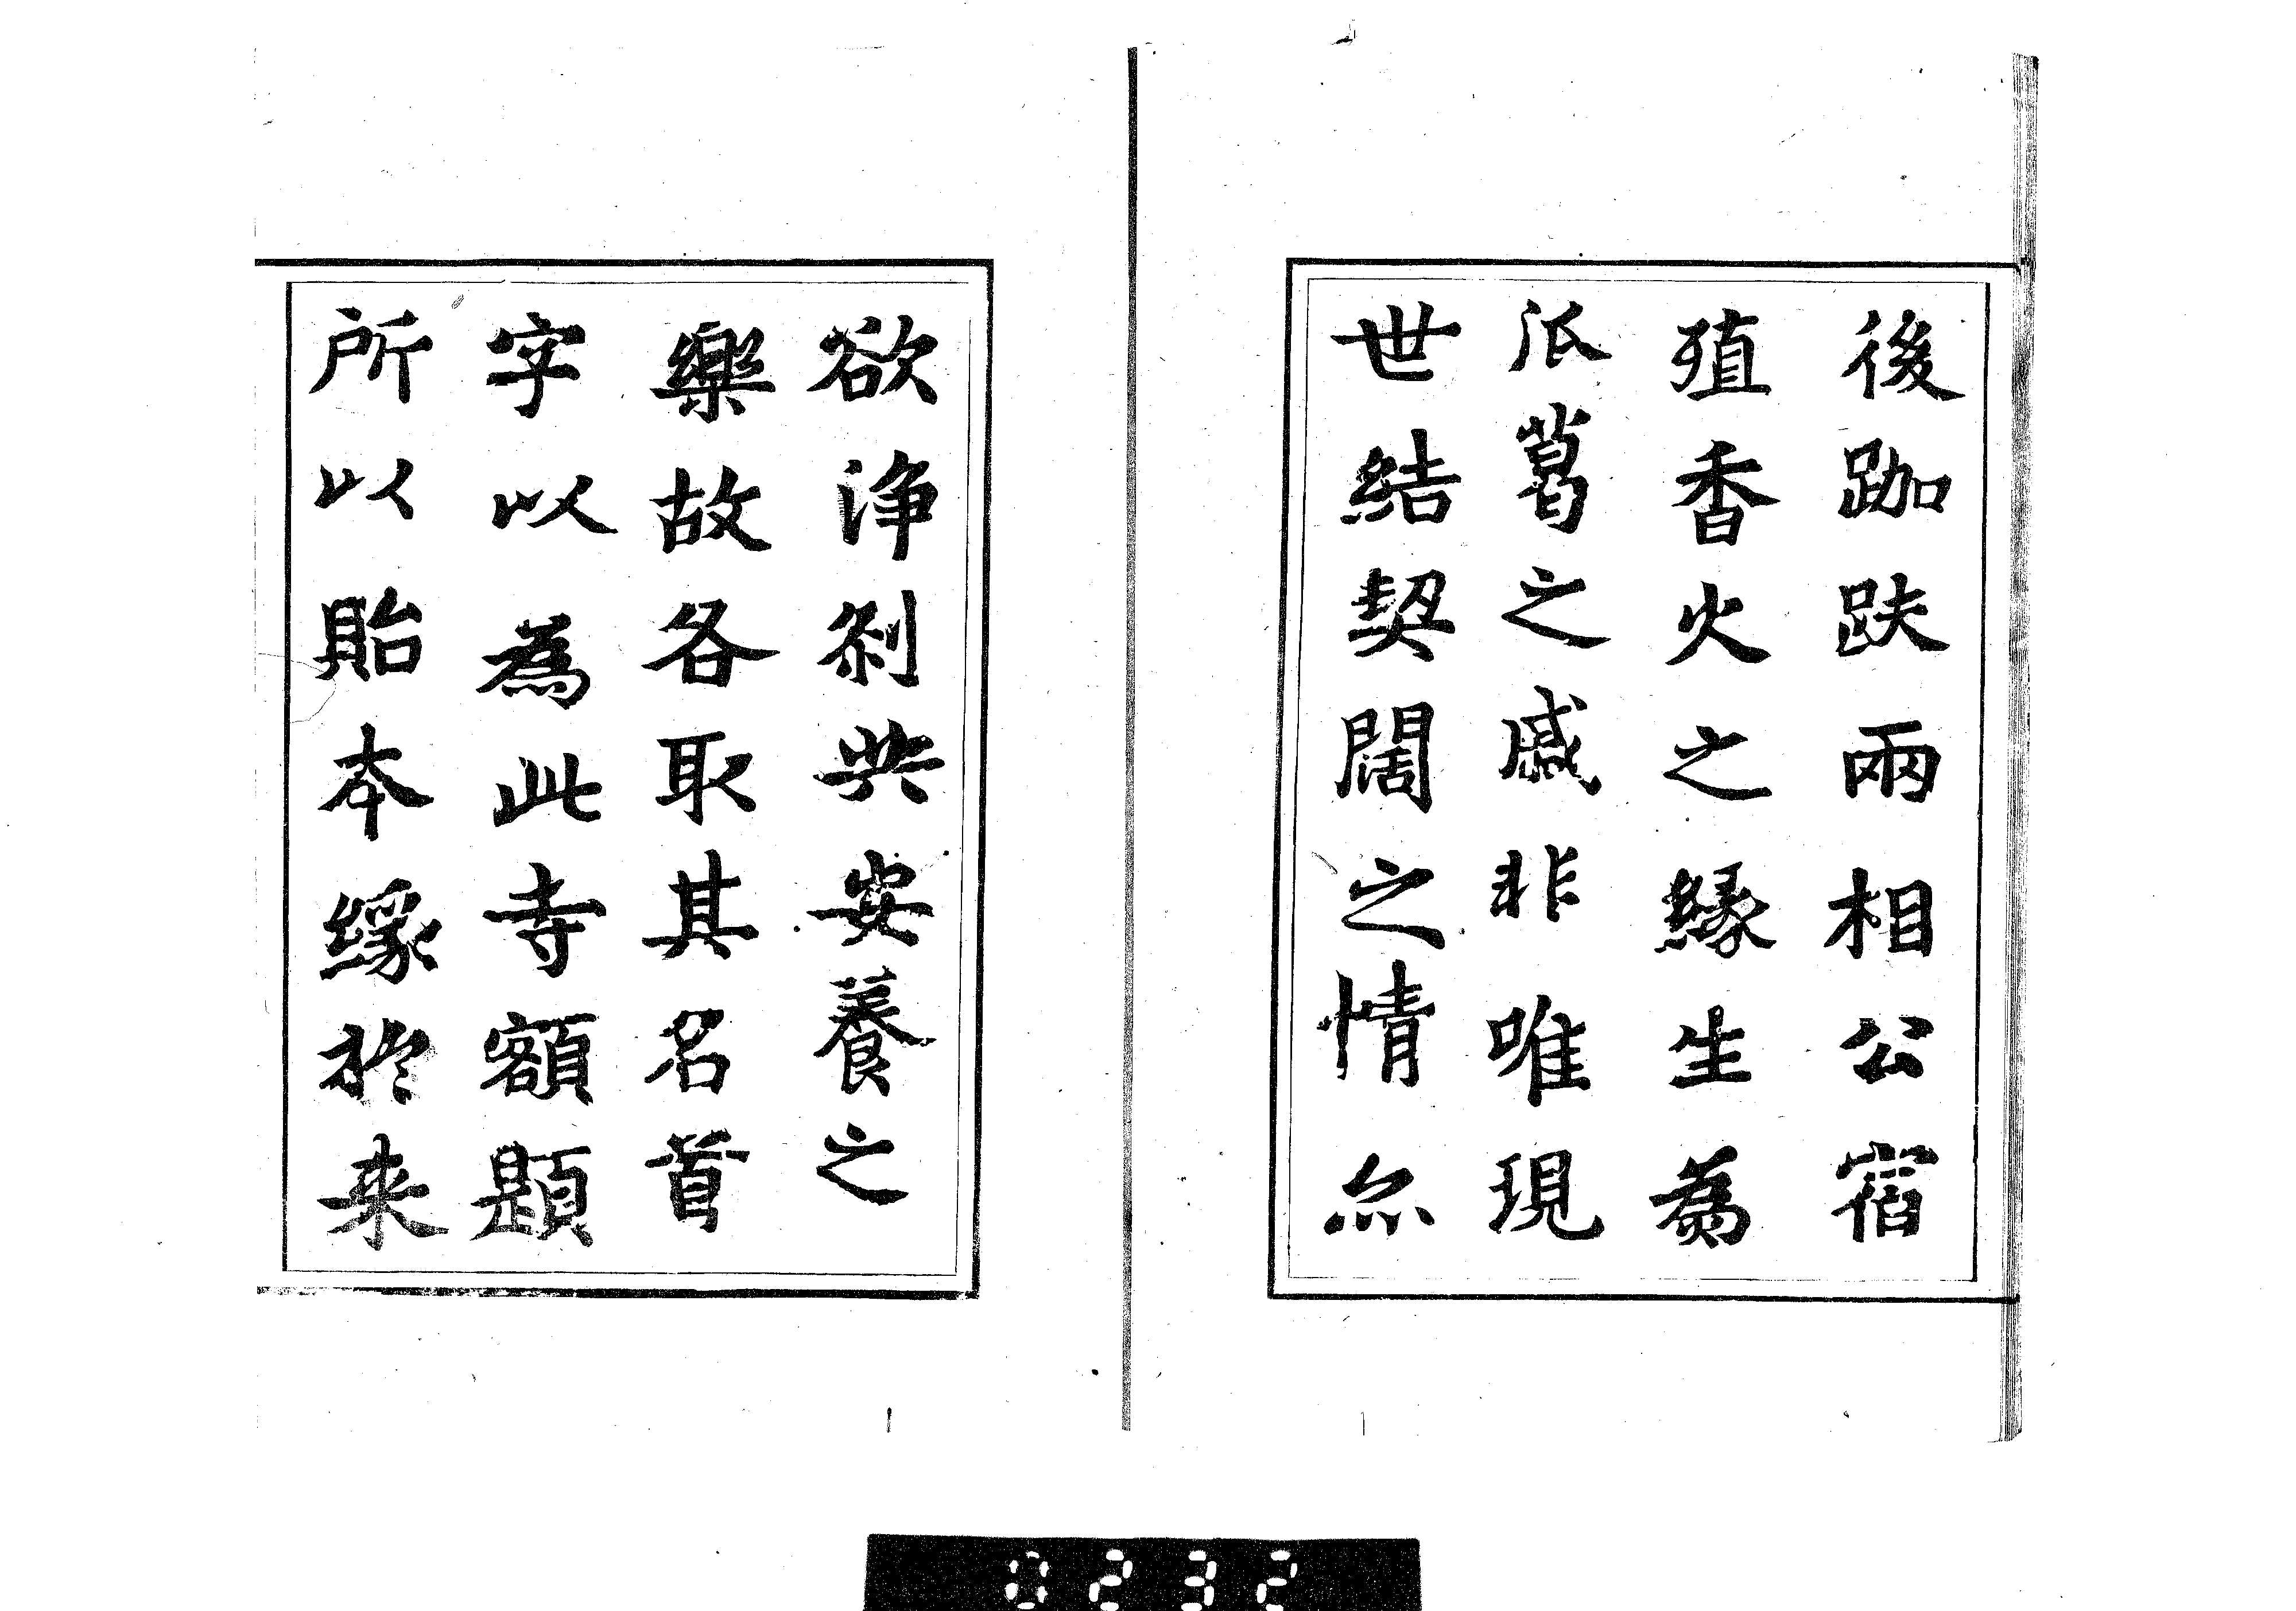 後跏趺兩相公宿
殖香火之緣生為
瓜葛之戚非唯現
世結契闊之情尒
欲浄刹共安養之
樂故各取其名首
字以為此寺額題
所以貽本緣於来
0232